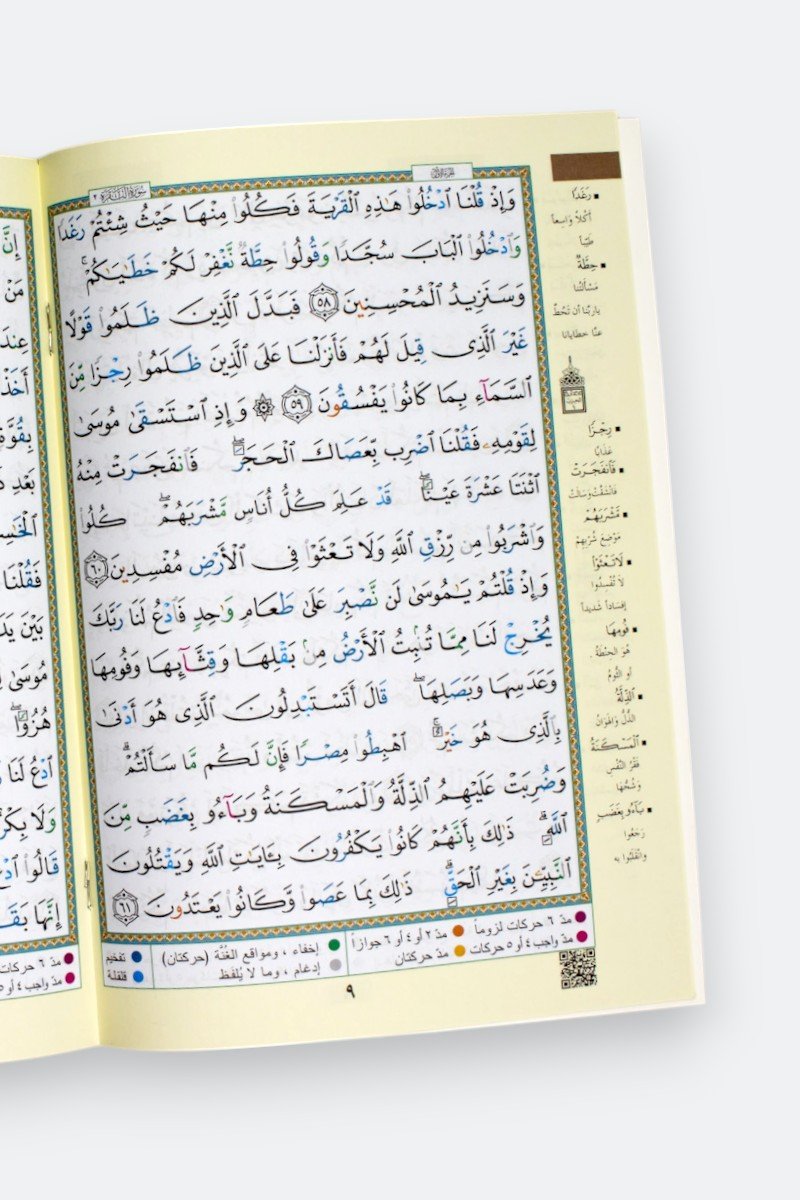 سورة البقرة ٢
الجزء الأول
وَإِذْ قُلْنَا ٱدْخُلُوا۟ هَـٰذِهِ ٱلْقَرْيَةَ فَكُلُوا۟ مِنْهَا حَيْثُ شِئْتُمْ رَغَدًا
وَٱدْخُلُوا۟ ٱلْبَابَ سُجَّدًا وَقُولُوا۟ حِطَّةٌ نَّغْفِرْ لَكُمْ خَطَـٰيَـٰكُمْ ۚ
وَسَنَزِيدُ ٱلْمُحْسِنِينَ ٥٨ فَبَدَّلَ ٱلَّذِينَ ظَلَمُوا۟ قَوْلًا
غَيْرَ ٱلَّذِى قِيلَ لَهُمْ فَأَنزَلْنَا عَلَى ٱلَّذِينَ ظَلَمُوا۟ رِجْزًا مِّنَ
ٱلسَّمَآءِ بِمَا كَانُوا۟ يَفْسُقُونَ ٥٩ ۞ وَإِذِ ٱسْتَسْقَىٰ مُوسَىٰ
لِقَوْمِهِۦ فَقُلْنَا ٱضْرِب بِّعَصَاكَ ٱلْحَجَرَ ۖ فَٱنفَجَرَتْ مِنْهُ
ٱثْنَتَا عَشْرَةَ عَيْنًا ۖ قَدْ عَلِمَ كُلُّ أُنَاسٍ مَّشْرَبَهُمْ ۖ كُلُوا۟
وَٱشْرَبُوا۟ مِن رِّزْقِ ٱللَّهِ وَلَا تَعْثَوْا۟ فِى ٱلْأَرْضِ مُفْسِدِينَ ٦٠
وَإِذْ قُلْتُمْ يَـٰمُوسَىٰ لَن نَّصْبِرَ عَلَىٰ طَعَامٍ وَٰحِدٍ فَٱدْعُ لَنَا رَبَّكَ
يُخْرِجْ لَنَا مِمَّا تُنۢبِتُ ٱلْأَرْضُ مِنۢ بَقْلِهَا وَقِثَّآئِهَا وَفُومِهَا
وَعَدَسِهَا وَبَصَلِهَا ۖ قَالَ أَتَسْتَبْدِلُونَ ٱلَّذِى هُوَ أَدْنَىٰ
بِٱلَّذِى هُوَ خَيْرٌ ۚ ٱهْبِطُوا۟ مِصْرًا فَإِنَّ لَكُم مَّا سَأَلْتُمْ ۗ
وَضُرِبَتْ عَلَيْهِمُ ٱلذِّلَّةُ وَٱلْمَسْكَنَةُ وَبَآءُو بِغَضَبٍ مِّنَ
ٱللَّهِ ۗ ذَٰلِكَ بِأَنَّهُمْ كَانُوا۟ يَكْفُرُونَ بِـَٔايَـٰتِ ٱللَّهِ وَيَقْتُلُونَ
ٱلنَّبِيِّـۧنَ بِغَيْرِ ٱلْحَقِّ ۗ ذَٰلِكَ بِمَا عَصَوا۟ وَّكَانُوا۟ يَعْتَدُونَ ٦١
رَغَدًا
أكلاً واسعاً
طيّباً
حِطَّةٌ
مسألتنا
ياربّنا أن تحطّ
عنّا خطايانا
رِجْزًا
عذاباً
فَٱنفَجَرَتْ
فانشقّت وسالت
مَّشْرَبَهُمْ
موضع شربهم
لَا تَعْثَوْا۟
لا تفسدوا
إفساداً شديداً
فُومِهَا
هو الحنطة
أو الثّوم
ٱلذِّلَّةُ
الذّلّ والهوان
ٱلْمَسْكَنَةُ
فقر النّفس
وشحّها
بَآءُو بِغَضَبٍ
رجعوا
وانقلبوا به
مدّ ٦ حركات لزوماً
مدّ ٢ أو ٤ أو ٦ جوازاً
إخفاء، ومواقع الغُنَّة (حركتان)
تفخيم
مدّ واجب ٤ أو ٥ حركات
مدّ حركتان
إدغام، وما لا يُلفَظ
قلقلة
٩
إِنَّ
مَنْ
أَخَذْ
بِقُوَّةٍ
بَعْدِ
فَقُلْنَا
بَيْنَ يَدَ
مُوسَىٰ
هُزُوًا ۖ
ٱدْعُ لَنَا
وَلَا بِكْرٌ
قَالُوا۟ ٱدْعُ
إِنَّهَا بَقَ
مدّ ٦ حركات
مدّ واجب ٤ أو ٥